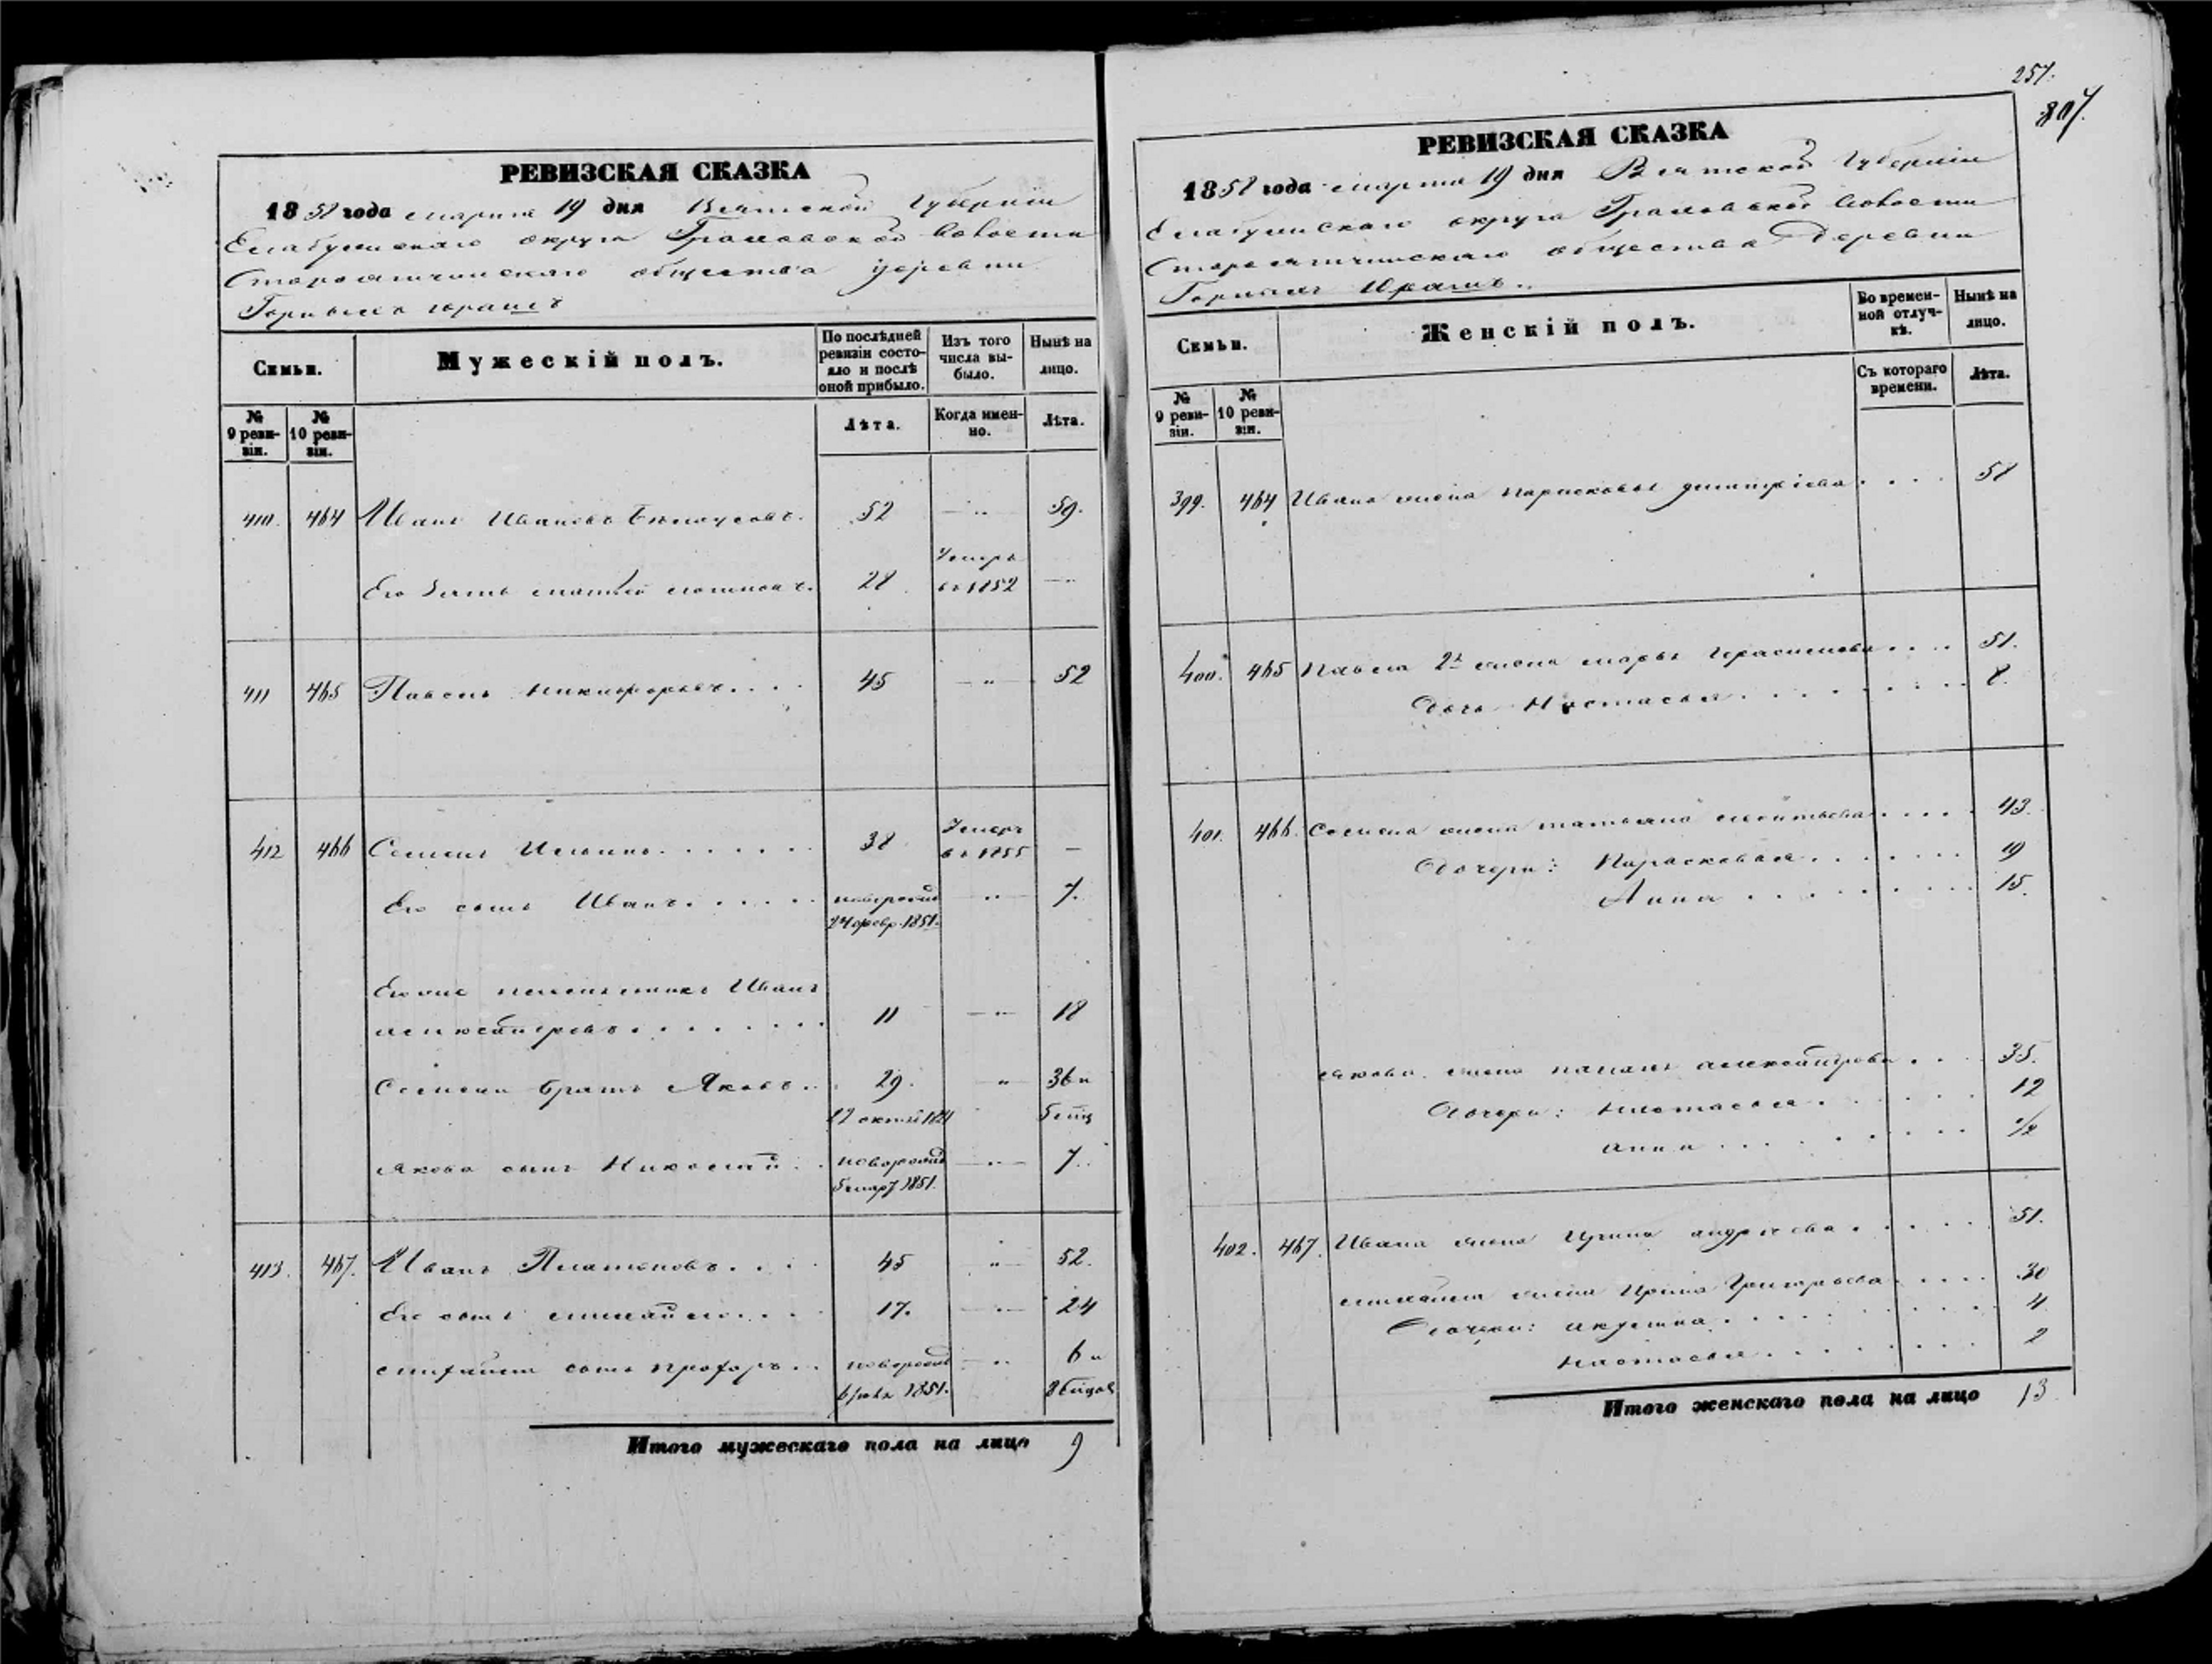 РЕВИЗСКАЯ СКАЗКА
1858 года марта 19 дня Вятской Губернiи
Елабужскаго округа Граховской Волости
общества деревни
Горныхъ Юрашъ
Семьи.
Мужескiй полъ.
По послѣдней ревизiи состояло и послѣ оной прибыло.
Изъ того числа выбыло.
Нынѣ на лицо.
№ 9 ревизiи.
№ 10 ревизiи.
Лѣта.
Когда именно.
Лѣта.
410. 464 Иванъ Ивановъ Бѣлоусовъ. 52 — „ 59.
Его зять 28 Умеръ въ 1852 — „
411 465 Павелъ Никифоровъ.... 45 — „ — 52
412 466 Семенъ Ильинъ....... 38 Умеръ въ 1855 —
Его сынъ Иванъ..... новорожд. 24 февр. 1851. „ — 7.
Его же племянникъ Иванъ
Александровъ........ 11 — „ — 18
Семена братъ Яковъ.. 29. „ 36 и
Якова сынъ Николай.. новорожд. 5 мар. 1851. — „ — 7.
413. 467. Иванъ Платоновъ.... 45 „ — 52.
Его сынъ Михайло.... 17. — „ — 24
Михайла сынъ Прохоръ... новорожд. 1851. — „ 6 и
Итого мужескаго пола на лицо 9
257.
807.
РЕВИЗСКАЯ СКАЗКА
1858 года марта 19 дня Вятской Губернiи
Елабужскаго округа Граховской Волости
общества Деревни
Горныхъ Юрашъ..
Семьи.
Женскiй полъ.
Во временной отлучкѣ.
Нынѣ на лицо.
№ 9 ревизiи.
№ 10 ревизiи.
Съ котораго времени.
Лѣта.
399. 464 Ивана жена Парасковья Дмитрiева.... 58
400. 465 Павла 2я жена Марья Герасимова.... 51.
Дочь Настасья......... 8.
401. 466. Семена жена Татьяна..... 43.
Дочери: Парасковья....... 19
Анна......... 15.
Якова жена Александрова.... 35.
Дочери: Настасья...... 12
Анна......... ½
402. 467. Ивана жена Андреева...... 51.
Михайла жена Ирина Григорьева..... 30
Дочери: Акулина......... 4.
Настасья........ 2
Итого женскаго пола на лицо 13.